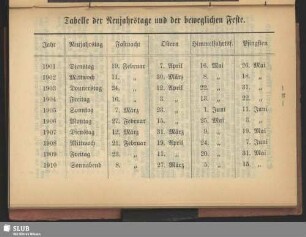 Tabelle der Neujahrstage und der beweglichen Feste.
Jahr Neujahrstag Fastnacht Ostern Himmelfahrt Pfingsten
1901 Dienstag 19. Februar 7. April 16. Mai 26. Mai
1902 Mittwoch 11. „ 30. März 8. „ 18. „
1903 Donnerstag 24. „ 12. April 21. „ 31. „
1904 Freitag 16. „ 3. „ 12. „ 22. „
1905 Sonntag 7. März 23. „ 1. Juni 11. Juni
1906 Montag 27. Februar 15. „ 24. Mai 3. „
1907 Dienstag 12. „ 31. März 9. „ 19. Mai
1908 Mittwoch 19. April 7. Juni
1909 Freitag 23. „ 11. „ 20. „ 31. Mai
1910 Sonnabend 8. „ 27. März 5. „ 15. „
SLUB